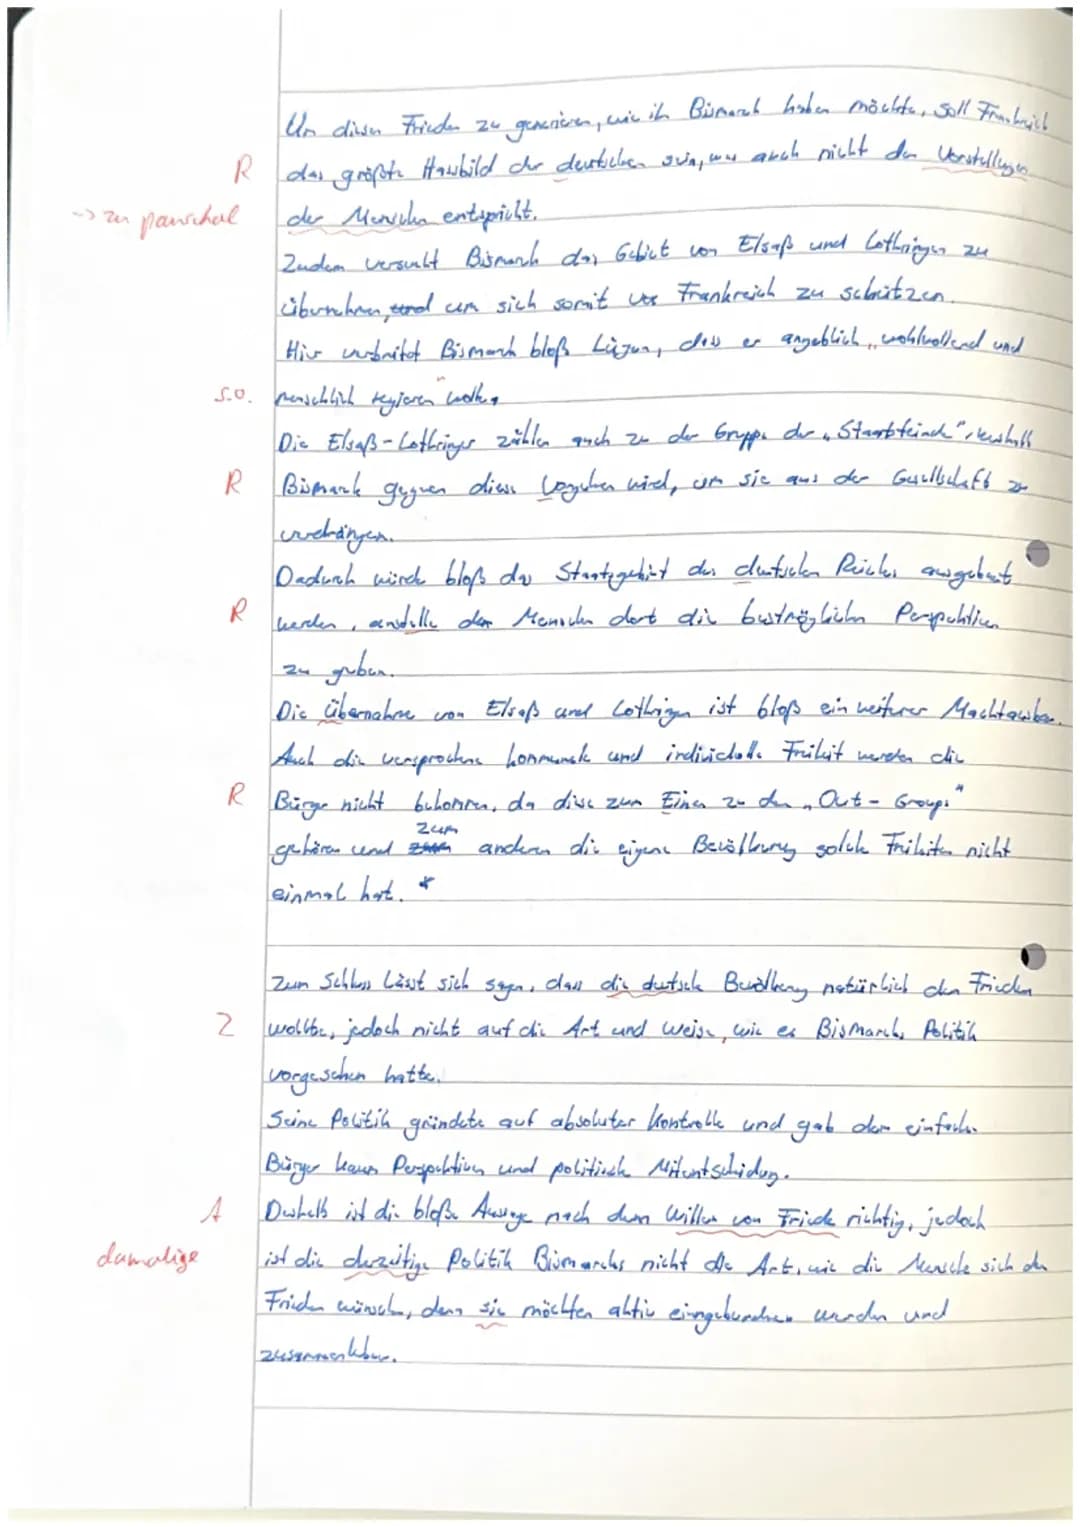 Um diesen Frieden zu generieren, wie ih Bismarck haben möchte, soll Frankreich
R das größte Hassbild der deutschen sein, was auch nicht den Vorstellungen
-> zu pauschal der Menschen entspricht.
Zudem versucht Bismarck das Gebiet von Elsaß und Lothringen zu
übernehmen, und um sich somit vor Frankreich zu schützen.
Hier verbreitet Bismarck bloß Lügen, dass er angeblich „wohlwollend und
s.o. menschlich regieren" wolle.
Die Elsaß-Lothringer zählen auch zu der Gruppe der „Staatsfeinde", weshalb
R Bismarck gegen diese vorgehen wird, um sie aus der Gesellschaft zu
verdrängen.
Dadurch würde bloß das Staatsgebiet des deutschen Reiches ausgebaut
R werden, anstelle den Menschen dort die bestmöglichen Perspektiven
zu geben.
Die Übernahme von Elsaß und Lothringen ist bloß ein weiterer Machtausbau.
Auch die versprochene kommunale und individuelle Freiheit werden die
R Bürger nicht bekommen, da diese zum Einen zu den „Out-Groups"
gehören und zum anderen die eigene Bevölkerung solche Freiheiten nicht
einmal hat. *
Zum Schluss lässt sich sagen, dass die deutsche Bevölkerung natürlich den Frieden
Z wollte, jedoch nicht auf die Art und Weise, wie es Bismarcks Politik
vorgesehen hatte.
Seine Politik gründete auf absoluter Kontrolle und gab dem einfachen
Bürger kaum Perspektiven und politische Mitentscheidung.
A Deshalb ist die bloße Aussage nach dem Willen von Friede richtig, jedoch
damalige ist die derzeitige Politik Bismarcks nicht die Art, wie die Menschen sich den
Frieden wünschen, denn sie möchten aktiv eingebunden werden und
zusammenleben.